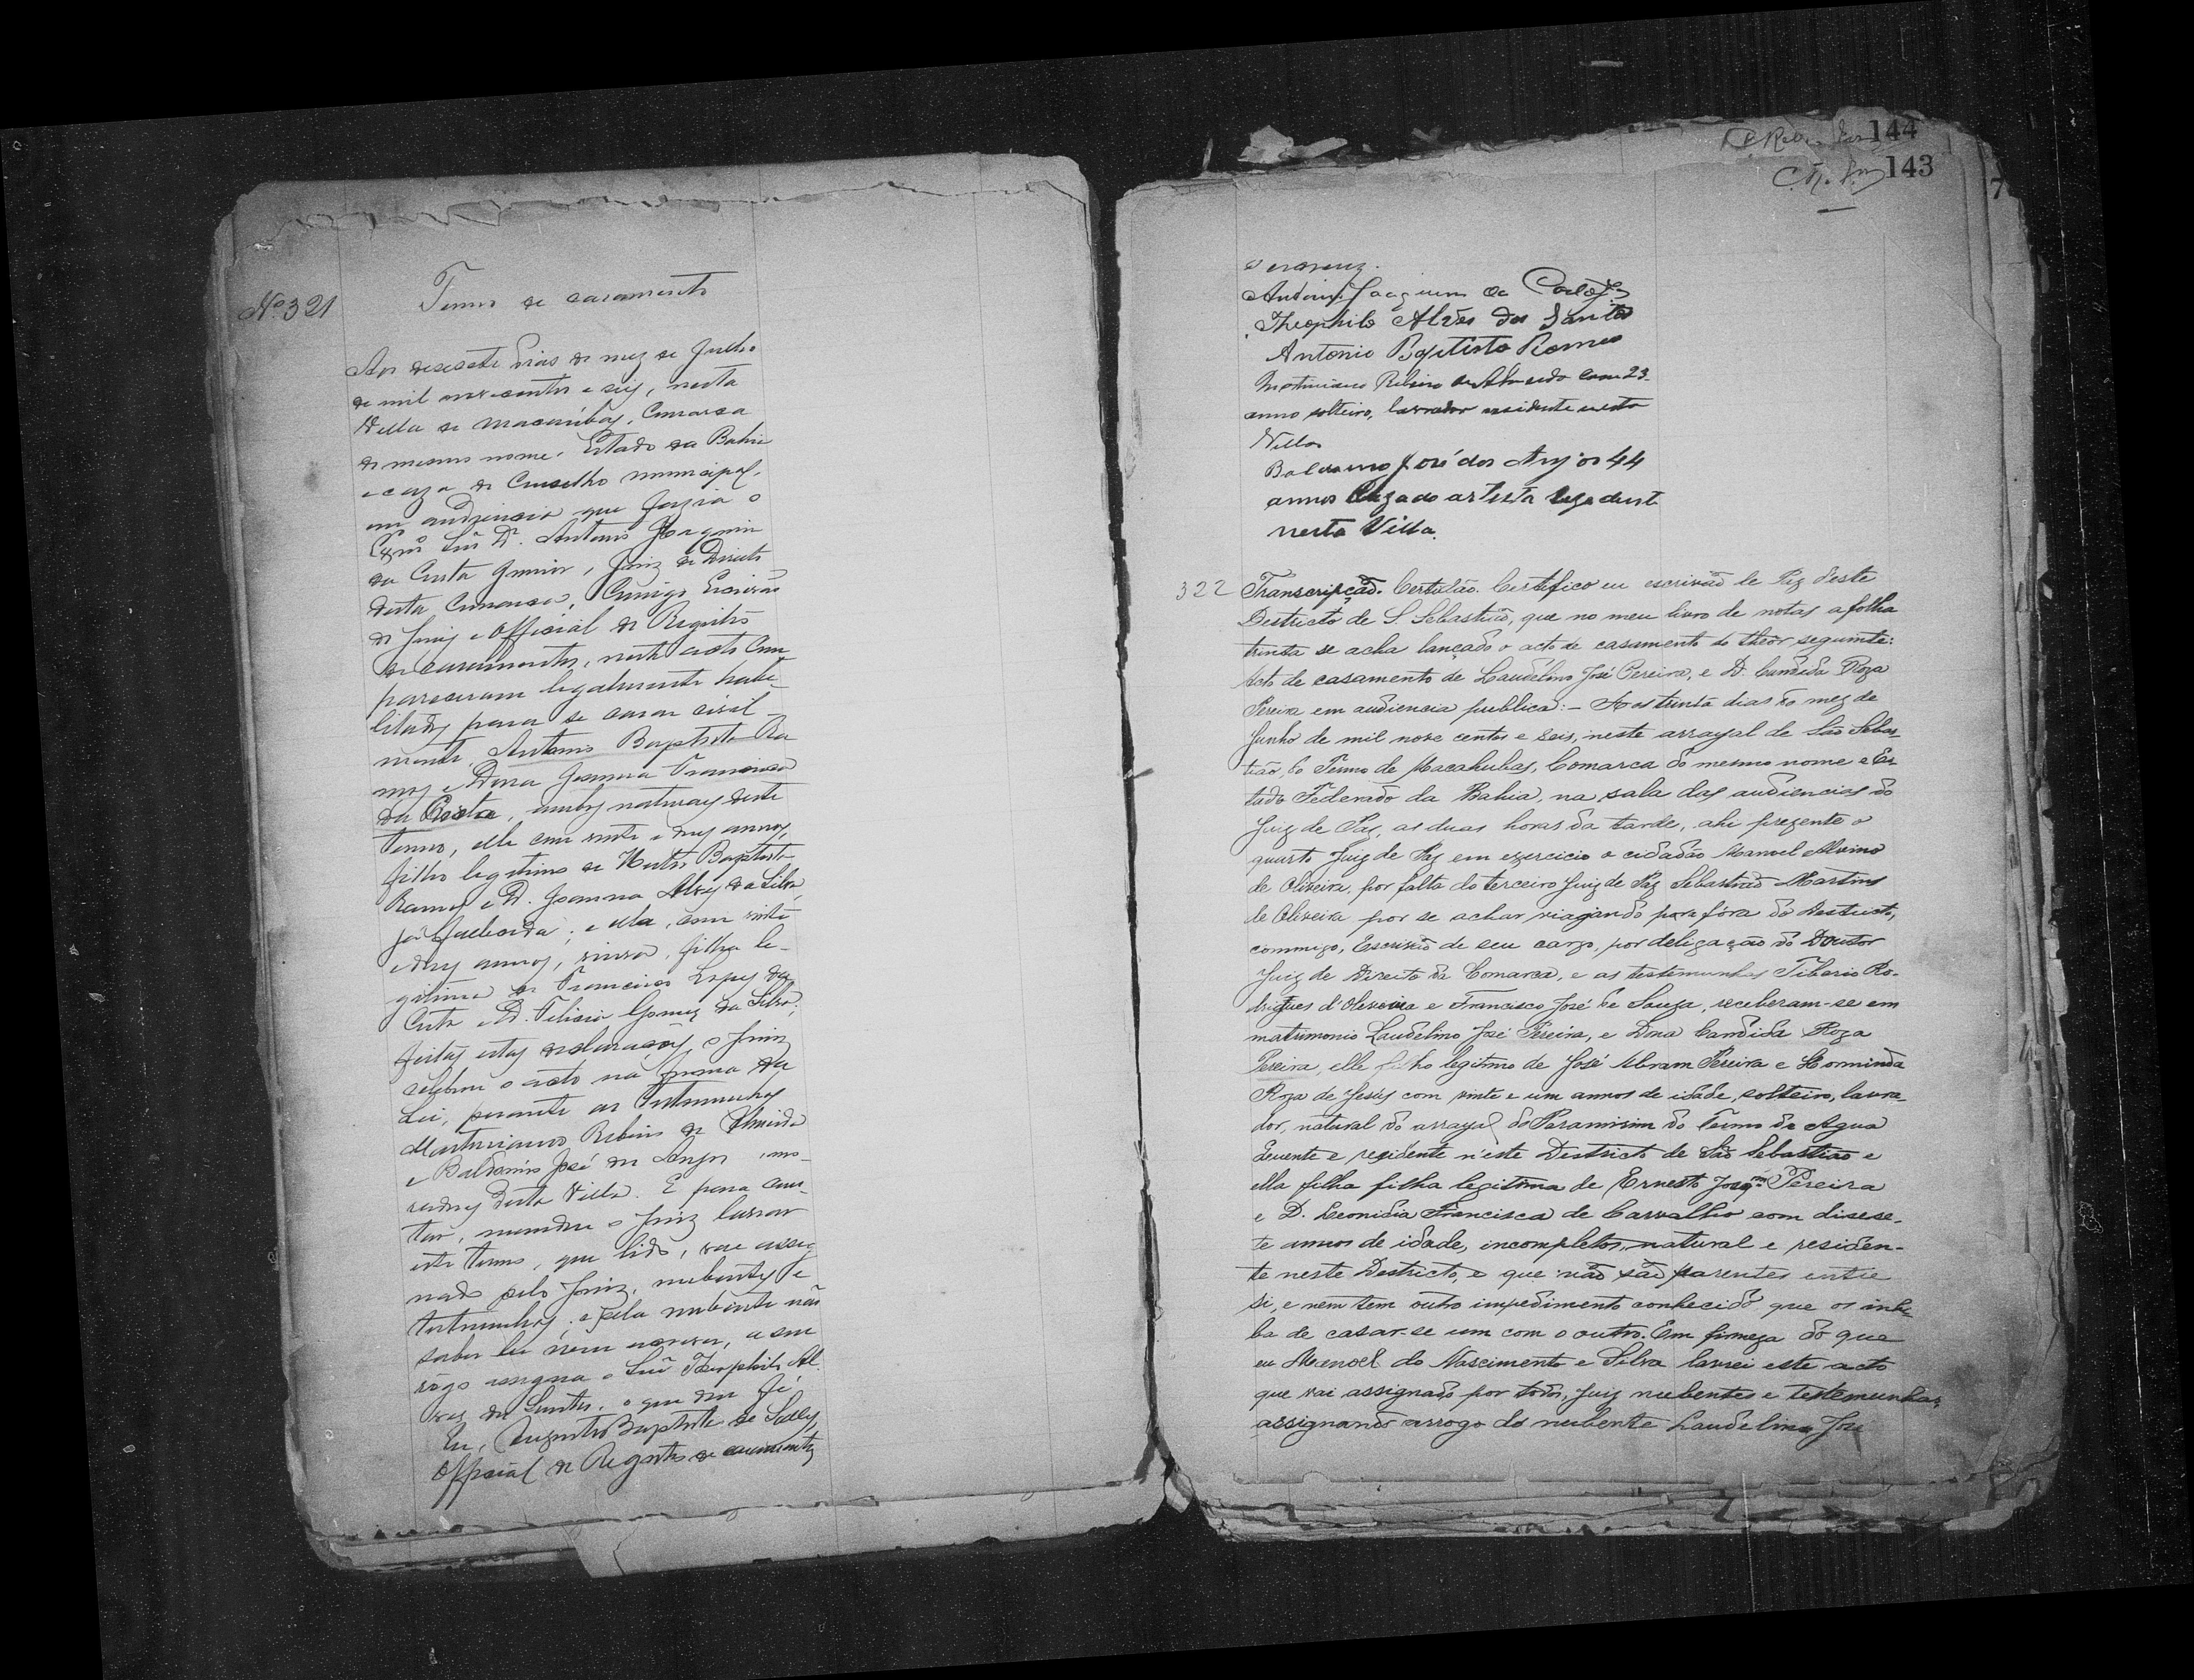 Nº 321
Termo de casamento
Aos desesete dias do mez de Julho
de mil novecentos e seis, nesta
Villa de Macaúbas, Comarca
do mesmo nome, Estado da Bahia
e caza do Conselho municipal,
em audiencia que fazia o
Exmo Snr Dr. Antonio Joaquim
da Costa Junior, Juiz de Direito
desta Comarca, Comigo Escrivão
de Juiz e Official do Registro
de casamentos, neste acto com
pareceram legalmente habi-
litados para se casar civil-
mente, Antonio Baptista Ra
mos e Dona Joanna Francisca
da Costa, ambos naturaes deste
termo, elle com vinte e dous annos,
filho legitimo de Baptista
Ramos e D. Joanna Alves da Silva,
já fallecida; e ella, com vinte
e dous annos, viuva, filha le-
gitima de Francisco Lopes da
Costa e D. Felisia Gomes da Silva;
feitas estas declarações, o Juiz
celebrou o acto na forma da
Lei, perante as testemunhas
Martiniano Ribeiro de Almeida
e Balduino José dos Anjos, mo-
radores desta Villa. E para cons-
tar, mandou o Juiz lavrar
este termo, que lido, vae assig
nado pelo Juiz, nubentes e
testemunhas; e pela nubente não
saber ler nem escrever, a seu
rogo assigna o Snr Theophilo Al
ves dos Santos, o que dou fé.
Eu, Augusto Baptista de Salles,
Official do Registro de casamentos
144
143
7
o escrevy.
Antonio Joaquim da Costa Jor
Theophilo Alves dos Santos
Antonio Baptista Ramos
Martiniano Ribeiro de Almeida com 23
anno solteiro, lavrador residente nesta
Villa
Balduino José dos Anjos 44
annos Cazado artista rezedente
nesta Villa.
322 Transcripção. Certidão. Certefico eu escrivão de Paz deste
Destricto de S. Sebastião, que no meu livro de notas a folha
trinta se acha lançado o acto de casamento do theôr seguinte:
Acto de casamento de Laudelino José Pereira, e D. Candida Roza
Pereira em audiencia publica: - Aos trinta dias do mez de
Junho de mil nove centos e seis, neste arrayal de São Sebas
tião, do Termo de Macahubas, Comarca do mesmo nome e Es
tado Federado da Bahia, na sala das audiencias do
Juiz de Paz, as duas horas da tarde, ahi prezente o
quarto Juiz de Paz em exercicio o cidadão Manoel Alvino
de Oliveira, por falta do terceiro Juiz de Paz Sebastião Martins
de Oliveira por se achar viajando para fóra do Destricto,
commigo, Escrivão de seu cargo, por deligação do Doutor
Juiz de Direito da Comarca, e as testemunhas Tiberio Ro-
drigues d'Oliveira e Francisco José de Souza, receberam-se em
matrimonio Laudelino José Pereira, e Dona Candida Roza
Pereira, elle filho legitimo de José Abram Pereira e Herminda
Roza de Jesús com vinte e um annos de idade, solteiro, lavra-
dor, natural do arrayal do Paramirim do Termo de Agua
Quente e rezidente n'este Destricto de São Sebastião e
ella filha filha legitima de Ernesto Joaqm Pereira
e D. Leonidia Francisca de Carvalho com disese-
te annos de idade, incompletos, natural e residen-
te neste Destricto, e que não são parentes entre
si, e nem tem outro impedimento conhecido que os inhi
ba de casar-se um com o outro. Em firmeza do que
eu Manoel do Nascimento e Silva lavrei este acto
que vai assignado por todos, Juiz nubentes e testemunhas
assignando arrogo do nubente Laudelino José